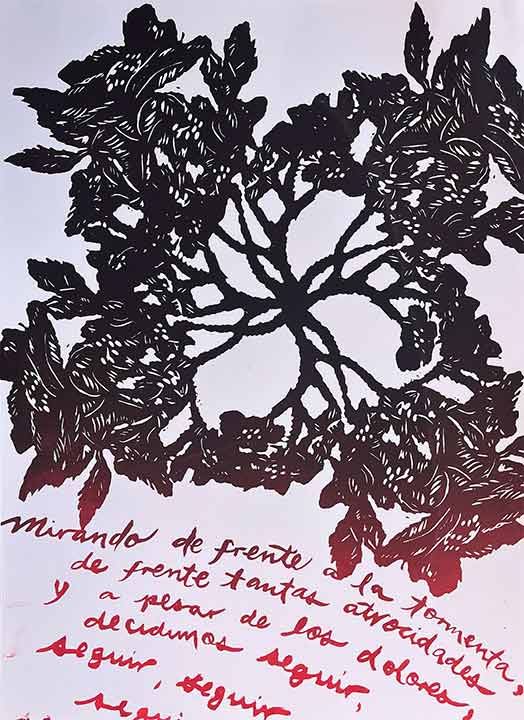 Mirando de frente a la tormenta,
de frente tantas atrocidades
y a pesar de los dolores,
decidimos seguir,
seguir, seguir